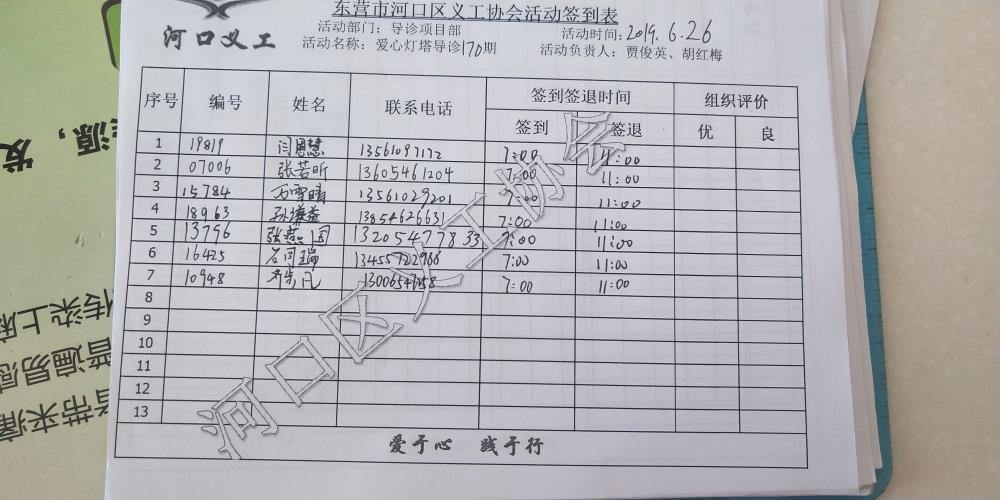 东营市河口区义工协会活动签到表
河口义工
活动部门：导诊项目部
活动时间：2019.6.26
活动名称：爱心灯塔导诊170期
活动负责人：贾俊英、胡红梅
序号 编号 姓名 联系电话 签到签退时间 组织评价
签到 签退 优 良
1 19819 闫恩慧 13561097172 7:00 11:00
2 07006 张若昕 13605461204 7:00 11:00
3 15784 万雪晴 13561029201 7:00 11:00
4 18963 孙谦益 13854626631 7:00 11:00
5 13796 张燕国 13205477833 7:00 11:00
6 16425 石同瑞 13455722966 7:00 11:00
7 10948 7:00 11:00
8
9
10
11
12
13
爱于心 践于行
河口区义工协会
发
源，
传染上麻
普遍易感
者带来痛